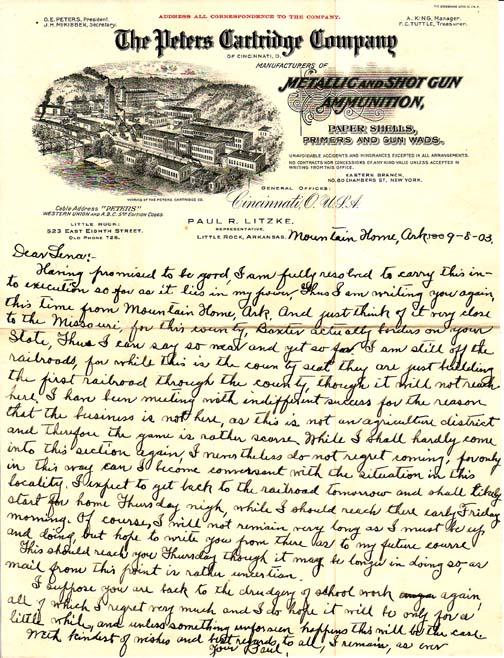 ADDRESS ALL CORRESPONDENCE TO THE COMPANY.
O.E. PETERS, President.
J.H. McKIBBEN, Secretary.
A. KING, Manager.
F.C. TUTTLE, Treasurer.
The Peters Cartridge Company
OF CINCINNATI, O.
MANUFACTURERS OF
METALLIC AND SHOT GUN
AMMUNITION,
PAPER SHELLS,
PRIMERS AND GUN WADS.
UNAVOIDABLE ACCIDENTS AND HINDRANCES EXCEPTED IN ALL ARRANGEMENTS.
NO CONTRACTS NOR CONCESSIONS OF ANY KIND VALID UNLESS ACCEPTED IN
WRITING FROM THIS OFFICE.
EASTERN BRANCH,
NO. 80 CHAMBERS ST., NEW YORK.
WORKS OF THE PETERS CARTRIDGE CO.
GENERAL OFFICES:
Cable Address "PETERS"
WESTERN UNION and A.B.C. 5TH EDITION CODES.
Cincinnati, O. U.S.A.
LITTLE ROCK:
523 EAST EIGHTH STREET.
OLD PHONE 725.
PAUL R. LITZKE,
REPRESENTATIVE,
LITTLE ROCK, ARKANSAS.
Mountain Home, Ark, 190 9-8-03
Dear Lena:-
Having promised to be good, I am fully resolved to carry this in-
to execution so far as it lies in my power, Thus I am writing you again,
this time from Mountain Home, Ark. And just think of it very close
to the Missouri, for this county Baxter actually borders on your
State, Thus I can say so near and yet so far I am still off the
railroads, for while this is the county seat they are just building
the first railroad through the county, though it will not reach
here. I have been meeting with indifferent success for the reason
that the business is not here, as this is not an agriculture district
and therefore the game is rather scarse, While I shall hardly come
into this section again, I nevertheless do not regret coming, for only
in this way can I become conversant with the situation in this
locality. I expect to get back to the railroad tomorrow and shall likely
start for home Thursday nigh, while I should reach there early Friday
morning. Of course, I will not remain very long as I must be up
and doing, but hope to write you from there as to my future course
This should reach you Thursday though it may be longer in doing so, as
mail from this point is rather uncertian.
I suppose you are back to the drudgery of school work again,
all of which I regret very much and I do hope it will be only for a
little while, and unless something unforseen happens this will be the case
With kindest of wishes and best regards to all, I remain, as ever
Your Paul.